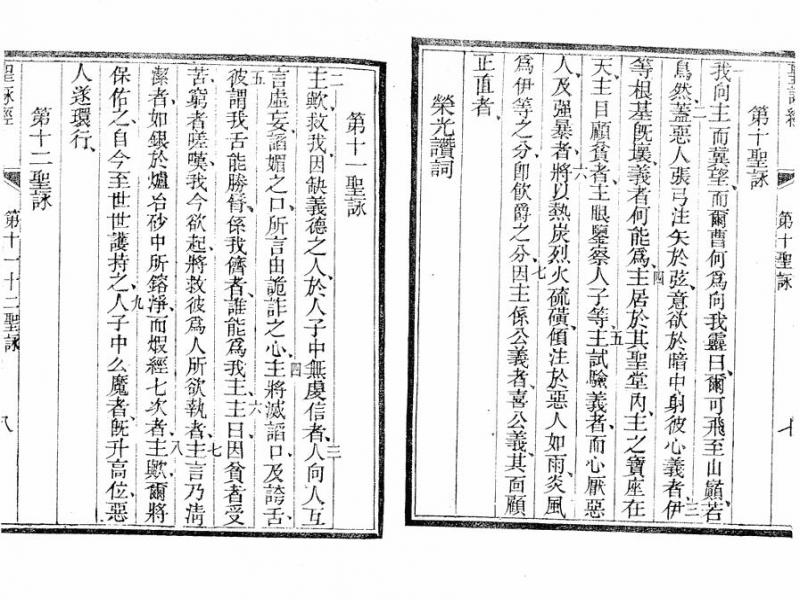 聖詠經
第十聖詠
第十聖詠
我向主而冀望、而爾曹何爲向我靈曰、爾可飛至山巓、若
二
鳥然、蓋惡人張弓、注矢於弦、意欲於暗中射彼心義者、伊
三
等根基旣壞、義者何能爲、主居於其聖堂內、主之寶座在
四
天、主目顧貧者、主眼鑒察人子等、主試驗義者、而心厭惡
五
人及强暴者、將以熱炭烈火硫磺、傾注於惡人如雨、炎風
六
爲伊等之分、卽飲爵之分、因主係公義者、喜公義、其面顧
七
正直者、
榮光讚詞
第十一聖詠
主歟、救我、因缺義德之人、於人子中無虔信者、人向人互
二
三
言虛妄、諂媚之口、所言由詭詐之心、主將滅諂口、及誇舌、
四
彼謂我舌能勝、脣係我儕者、誰能爲我主、主曰、因貧者受
五
六
苦、窮者嗟嘆、我今欲起、將救彼爲人所欲執者、主言乃淸
七
潔者、如銀於爐冶砂中所鎔凈、而煆經七次者、主歟、爾將
八
保佑之、自今至世世護持之、人子中么魔者、旣升高位、惡
九
人遂環行、
第十二聖詠
聖詠經
第十一十二聖詠
八